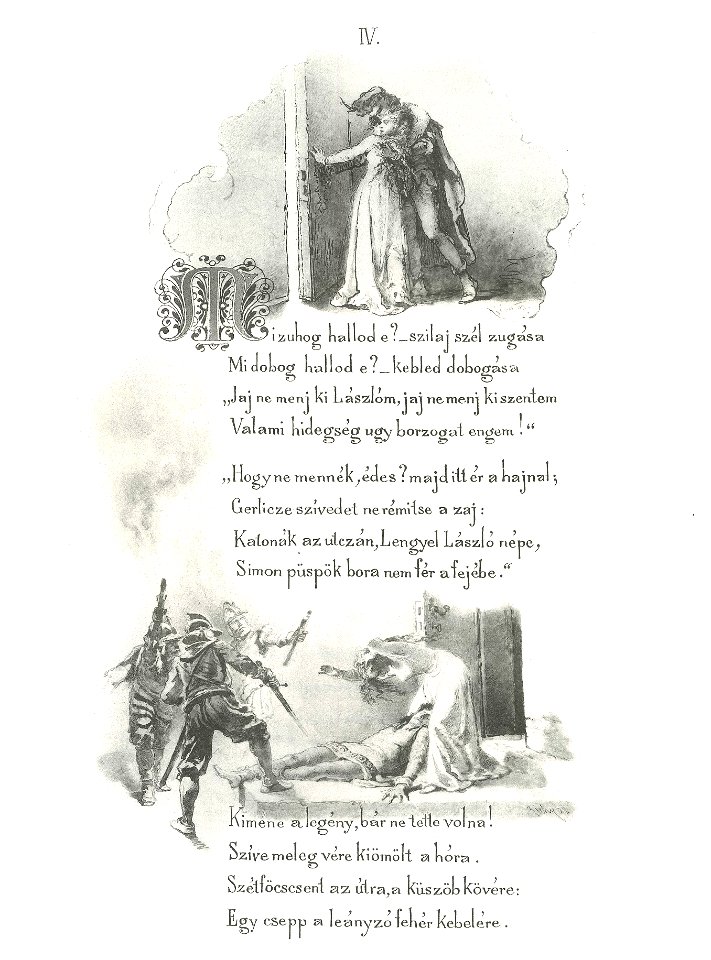 IV.
Mizuhog hallod e?_szilaj szél zugása
Mi dobog hallod e?_kebled dobogása
„Jaj ne menj ki Lászlóm, jaj ne menj ki szentem
Valami hidegség ugy borzogat engem!“
„Hogy ne mennék, édes? majd itt ér a hajnal;
Gerlicze szívedet ne rémitse a zaj:
Katonák az utczán, Lengyel László népe,
Simon püspök bora nem fér a fejébe.“
Kimene a legény, bár ne tette volna!
Szíve meleg vére kiömölt a hóra.
Szétföcscsent az útra, a küszöb kövére:
Egy csepp a leányzó fehér kebelére.